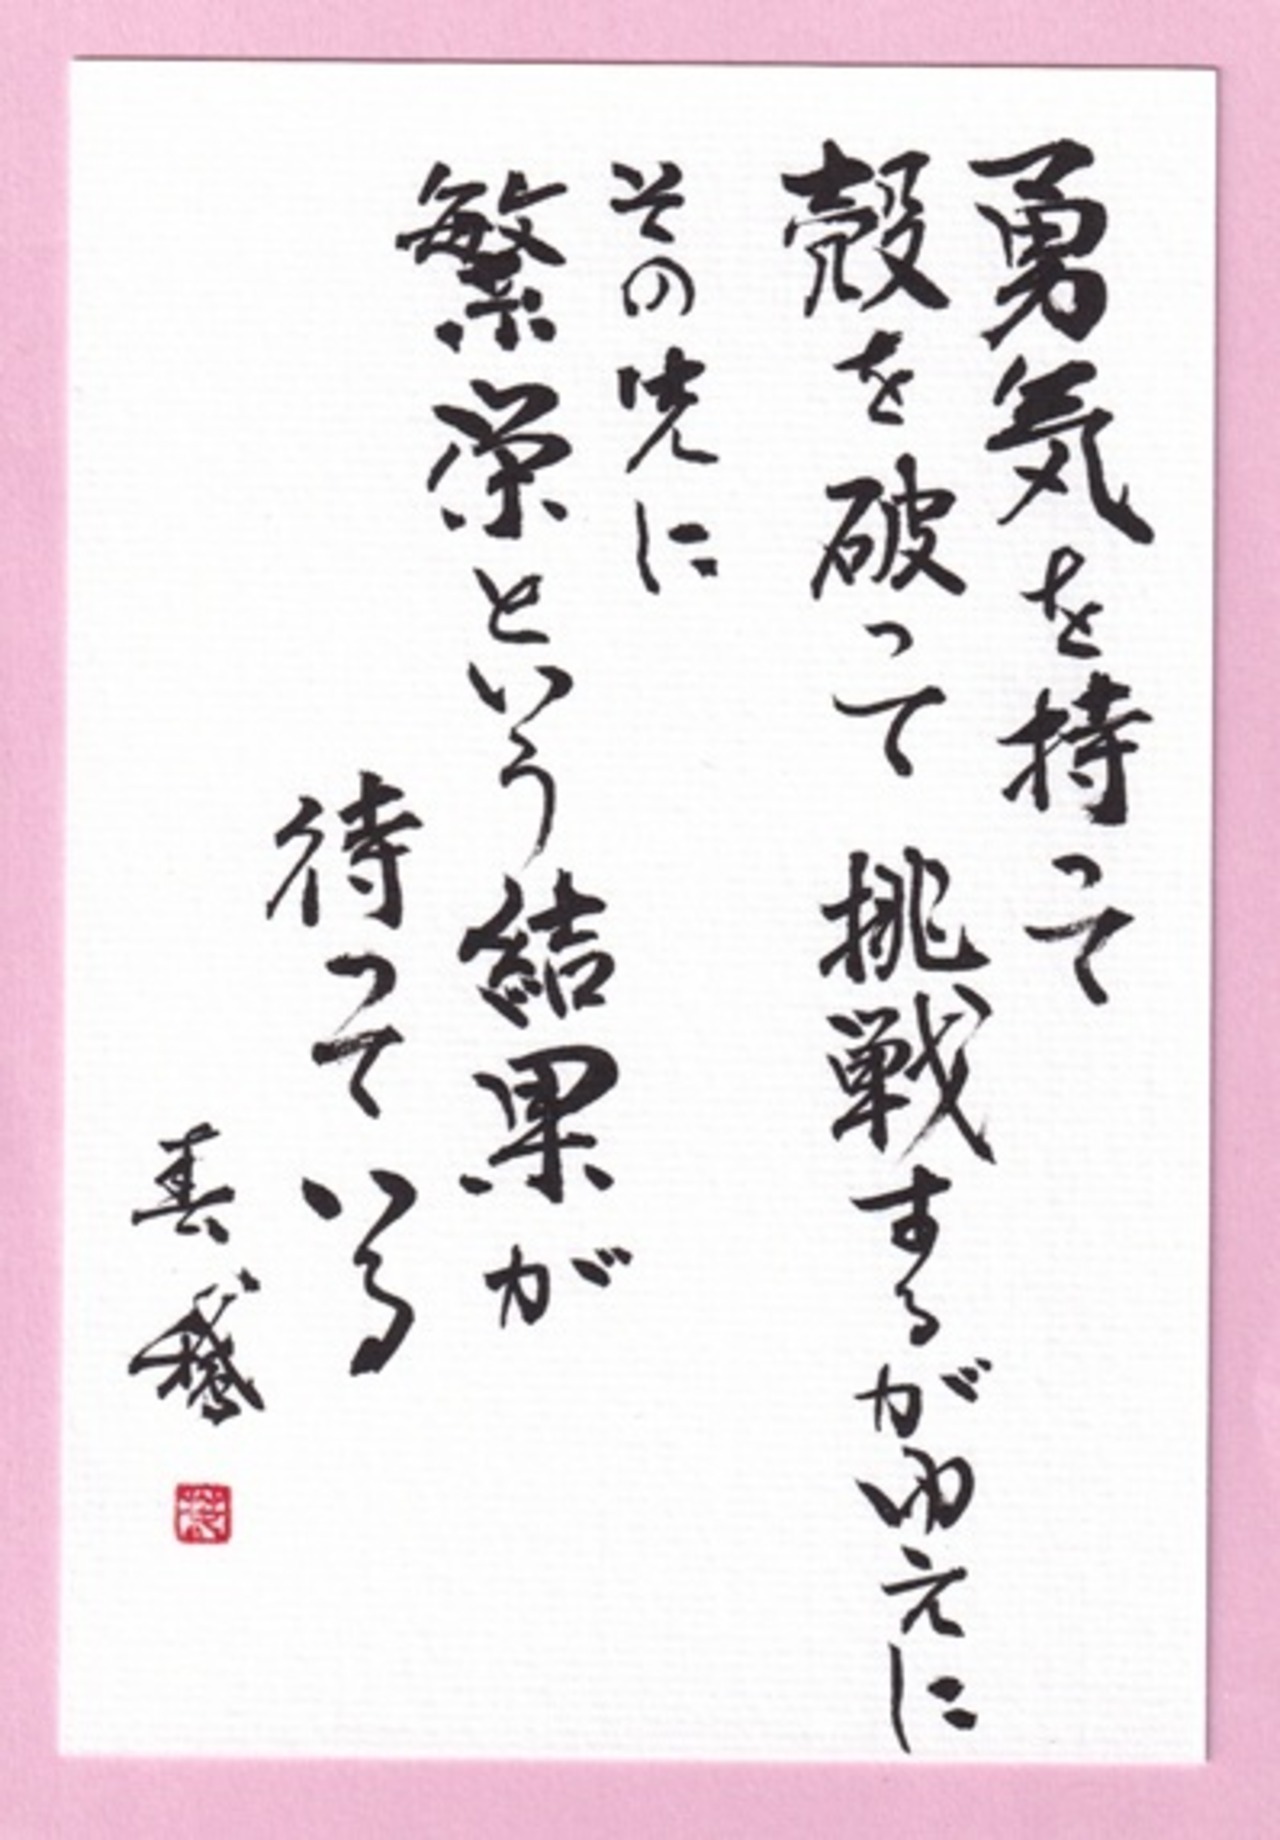 勇気を持って
殻を破って 挑戦するがゆえに
その先に
繁栄という結果が
待っている